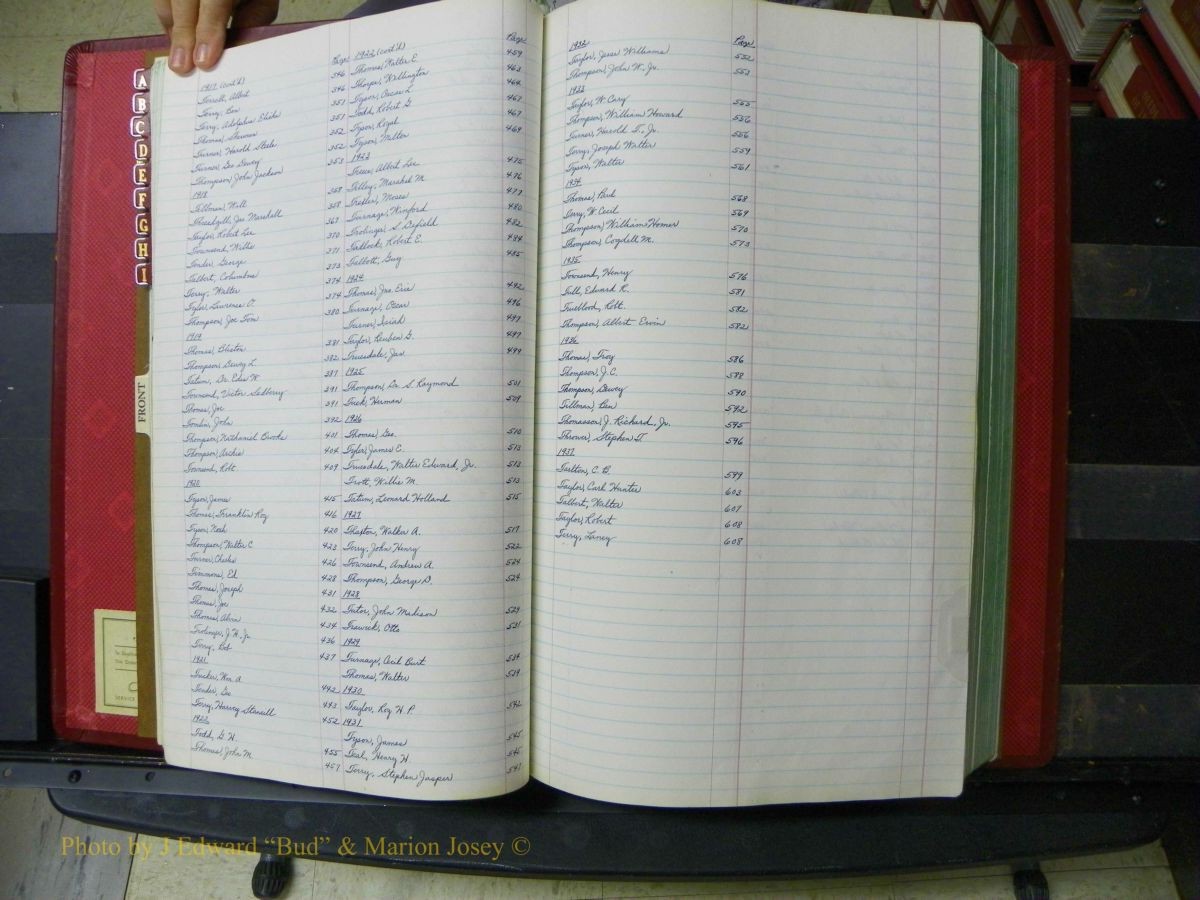 A
B
C
D
E
F
G
H
I
FRONT
Page
1917 (cont'd)
Terrell, Albert 346
Terry, Ben 346
Terry, Adolphus 351
Thomas, 351
Turner, Harold Steele 352
Turner, Geo Dewey 352
Thompson, John Jackson 353
1918
Tillman, Will 358
Threadgill, Jas Marshall 358
Taylor, Robert Lee 367
Townsend, Willie 370
Tender, George 371
Talbert, Columbus 373
Terry, Walter 374
Tyler, Laurence O. 374
Thompson, Joe Tom 380
1919
Thomas, 381
Thompson, Dewey L. 382
Tatum, Dr. W. 387
Townsend, Victor 391
Thomas, Joe 391
Tomlin, John 392
Thompson, Nathaniel Brooks 401
Thompson, Archie 404
Townsend, Robt 409
1920
Tyson, James 415
Thomas, Franklin Roy 416
Tyson, Noah 420
Thompson, Walter C 423
Turner, Charles 426
Timmons, Ed 428
Thomas, Joseph 431
Thomas, Joe 432
Thomas, 434
Trolinger, J. W. Jr 436
Terry, Bob 437
1921
Tucker, Wm. A.
Tender, Geo 442
Terry, Harvey Stancill 443
1922 452
Todd, G. W.
Thomas, John M. 455
457
Page
1922 (cont'd)
Thomas, Walter E. 459
Thorpe, Wellington 463
Tyson, Oscar L. 464
Todd, Robert G. 467
Tyson, Royal 467
Tyson, Walter 469
1923
Treece, Albert Lee 475
Tilley, Marshal M. 476
Trexler, Moses 477
Turnage, Winford 480
Trolinger, S. 482
Tadlock, Robert E. 484
Talbott, Guy 485
1924
Thomas, Jno. Eric 492
Turnage, Oscar 496
Turner, Isiah 497
Taylor, Reuben G. 497
Truesdale, Jas 499
1925
Thompson, Dr. S. Raymond 501
Tuck, Herman 509
1926
Thomas, Geo. 510
Tyler, James C. 513
Truesdale, Walter Edward, Jr. 513
Trott, Willie M. 513
Tatum, Leonard Holland 515
1927
Thaxton, Walker A. 517
Terry, John Henry 522
Townsend, Andrew A. 524
Thompson, George D. 524
1928
Tutor, John Madison 529
Trawick, Otto 531
1929
Turnage, Cecil Burt 534
Thomas, Walter 539
1930
Taylor, Roy W. P. 542
1931
Tyson, James 545
Teal, Henry H. 545
Terry, Stephen Jasper 547
Page
1932
Taylor, Jesse Williams 552
Thompson, John W. Jr. 553
1933
Taylor, W. Cary 555
Thompson, William Howard 556
Turner, Harold S., Jr. 556
Terry, Joseph Walter 559
Tyson, Walter 561
1934
Thomas, Paul 568
Terry, W. Cecil 569
Thompson, William Homer 570
Thompson, Cogdell M. 573
1935
Townsend, Henry 576
Tull, Edward R. 581
Trueblood, Robt. 582
Thompson, Albert Ervin 582
1936
Thomas, Troy 586
Thompson, J. C. 588
Thompson, Dewey 590
Tillman, Ben 592
Thomasson, J. Richard, Jr. 595
Thrower, Stephen T. 596
1937
Tarlton, C. B. 599
Taylor, Carl Hunter 603
Talbert, Walter 607
Taylor, Robert 608
Terry, Laney 608
Photo by J Edward “Bud” & Marion Josey ©